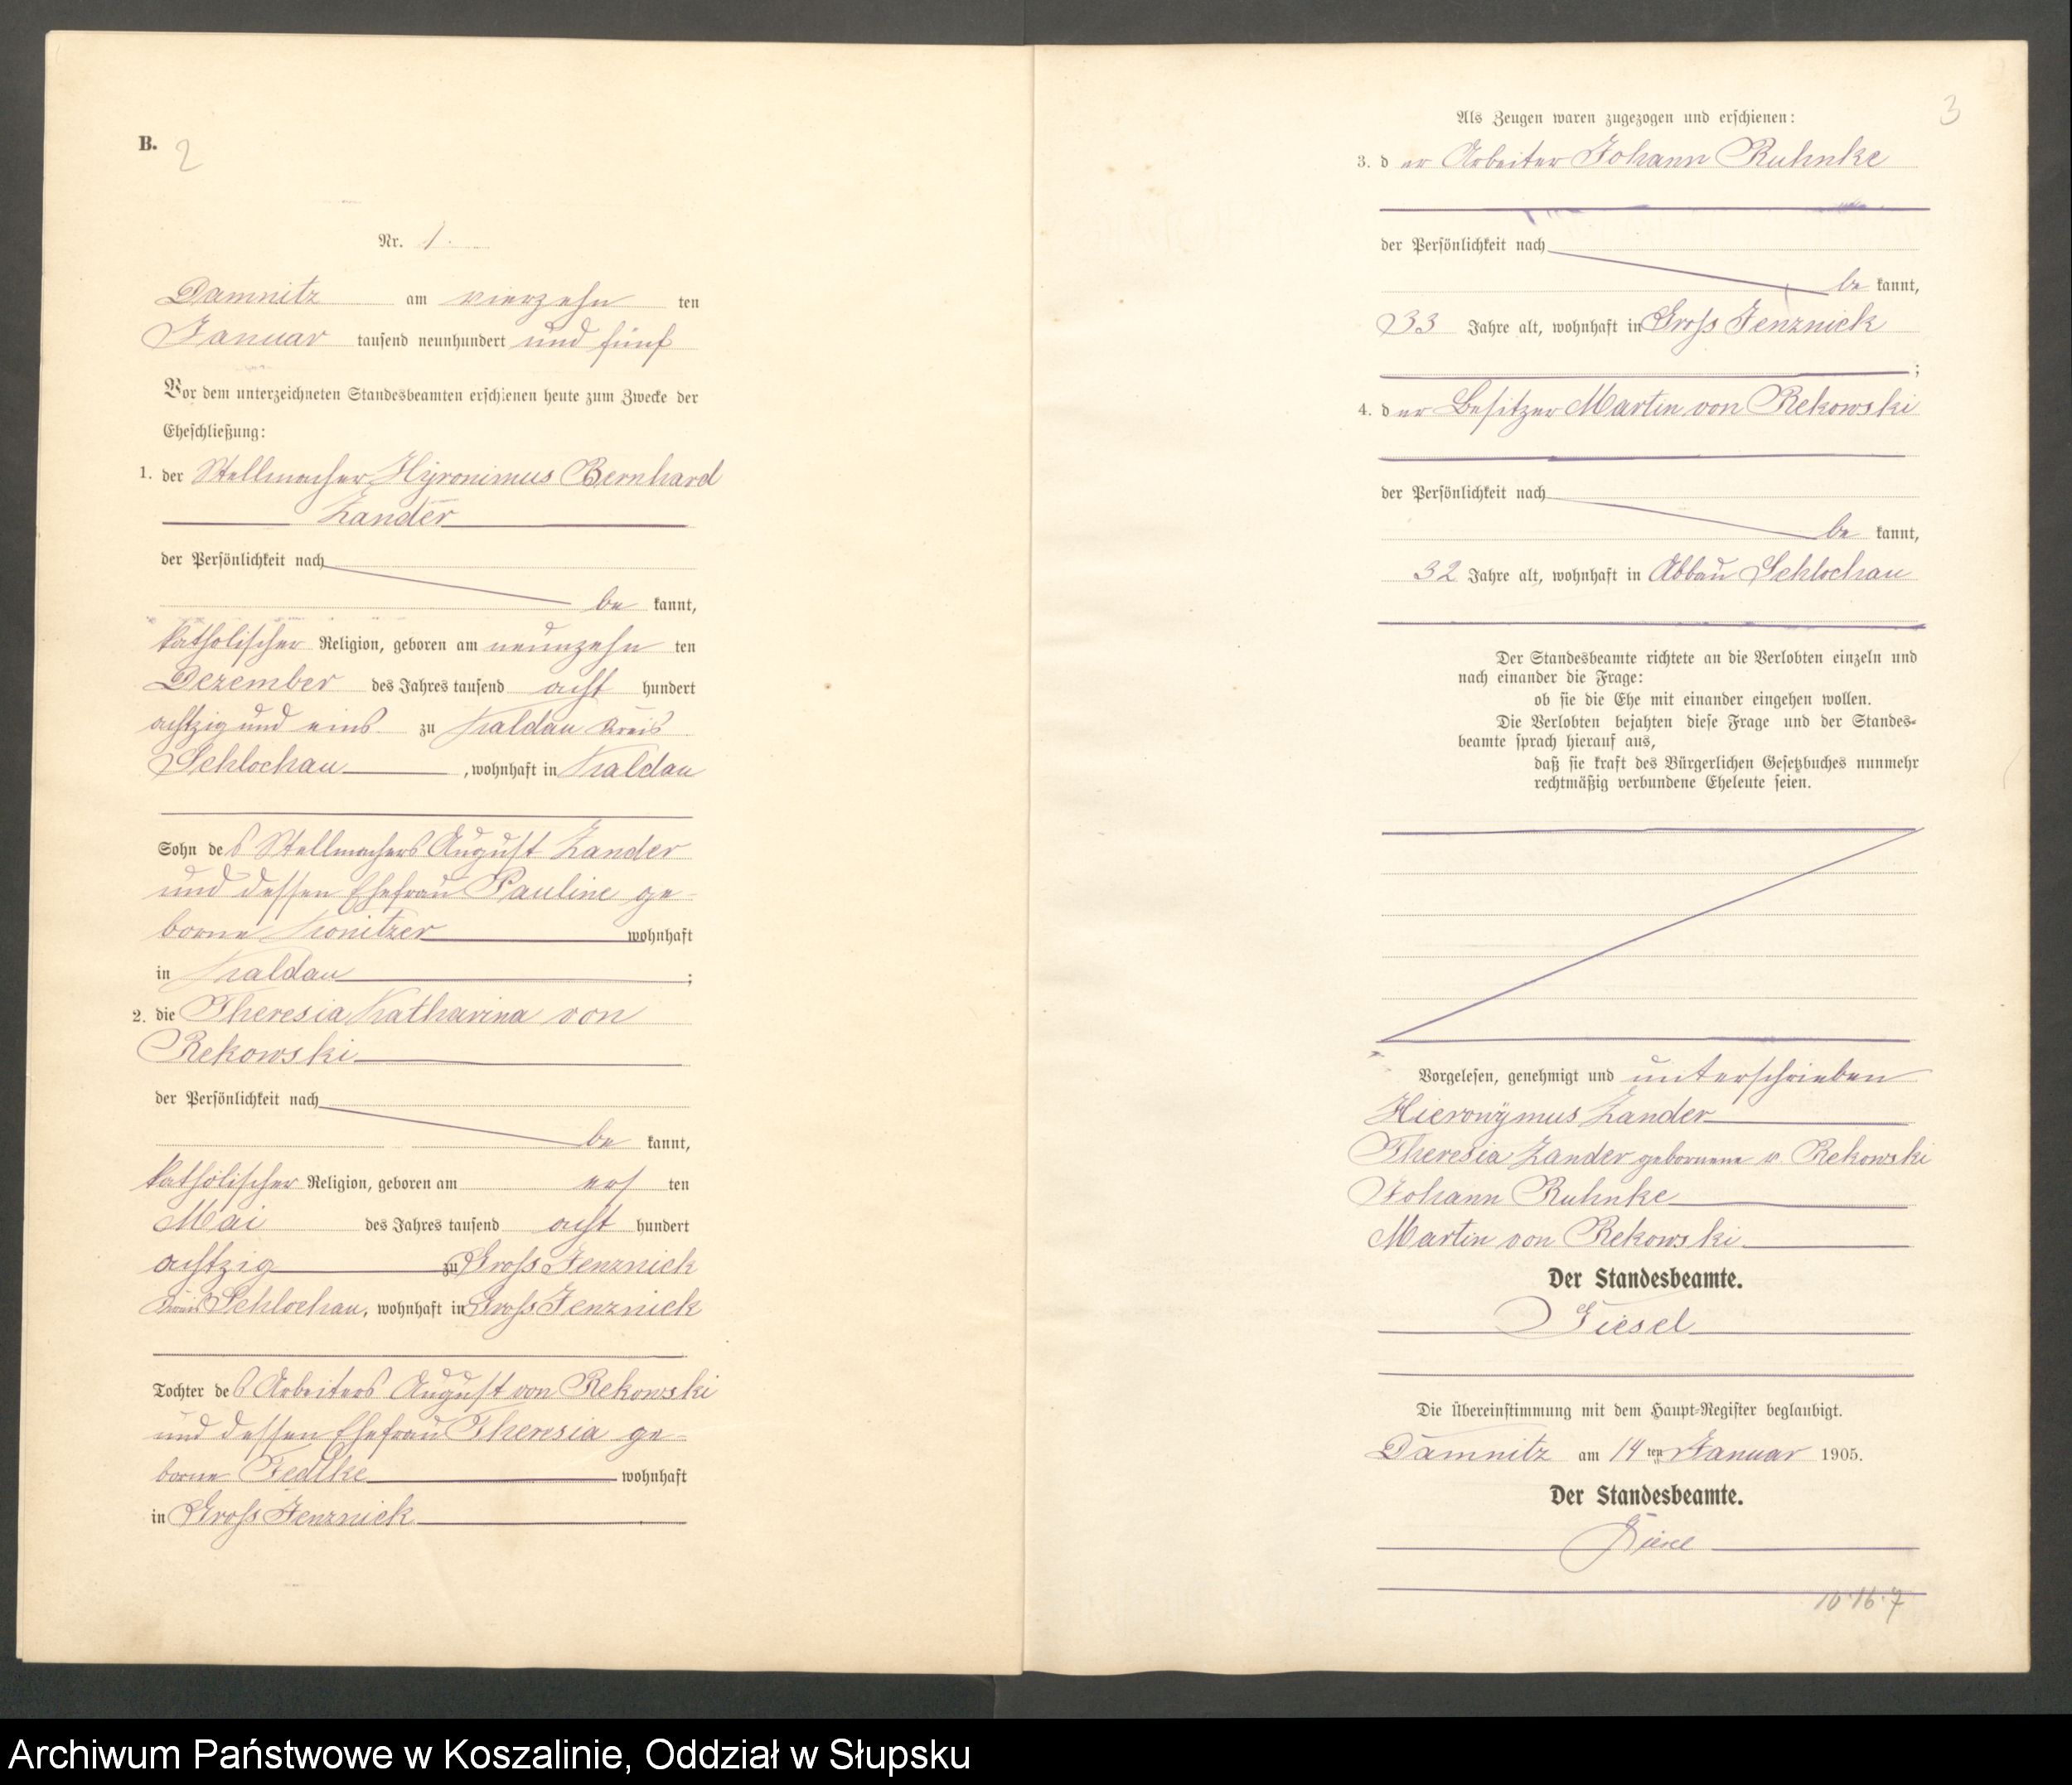 B. 2
Nr. 1.
Damnitz am vierzehn ten
Januar tausend neunhundert und fünf
Vor dem unterzeichneten Standesbeamten erschienen heute zum Zwecke der
Eheschließung:
1. der Stellmacher Hyronimus Bernhard
Zander
der Persönlichkeit nach
be kannt,
katholischer Religion, geboren am neunzehn ten
Dezember des Jahres tausend acht hundert
achtzig und eins zu Kaldau Kreis
Schlochau, wohnhaft in Kaldau
Sohn des Stellmachers August Zander
und dessen Ehefrau Pauline ge-
borne Konitzer wohnhaft
in Kaldau ;
2. die Theresia Katharina von
Rekowski
der Persönlichkeit nach
be kannt,
katholischer Religion, geboren am ers ten
Mai des Jahres tausend acht hundert
achtzig zu Gross Jenznick
Kreis Schlochau, wohnhaft in Gross Jenznick
Tochter des Arbeiters August von Rekowski
und dessen Ehefrau Theresia ge-
borne Fedtke wohnhaft
in Gross Jenznick
3
Als Zeugen waren zugezogen und erschienen:
3. d er Arbeiter Johann Ruhnke
der Persönlichkeit nach
be kannt,
33 Jahre alt, wohnhaft in Gross Jenznick
;
4. d er Besitzer Martin von Rekowski
der Persönlichkeit nach
be kannt,
32 Jahre alt, wohnhaft in Abbau Schlochau
Der Standesbeamte richtete an die Verlobten einzeln und
nach einander die Frage:
ob sie die Ehe mit einander eingehen wollen.
Die Verlobten bejahten diese Frage und der Standes-
beamte sprach hierauf aus,
daß sie kraft des Bürgerlichen Gesetzbuches nunmehr
rechtmäßig verbundene Eheleute seien.
Vorgelesen, genehmigt und unterschrieben
Hieronymus Zander
Theresia Zander geborene v. Rekowski
Johann Ruhnke
Martin von Rekowski
Der Standesbeamte.
Giesel
Die Übereinstimmung mit dem Haupt-Register beglaubigt.
Damnitz am 14 ten Januar 1905.
Der Standesbeamte.
Giesel
10.16.7
Archiwum Państwowe w Koszalinie, Oddział w Słupsku